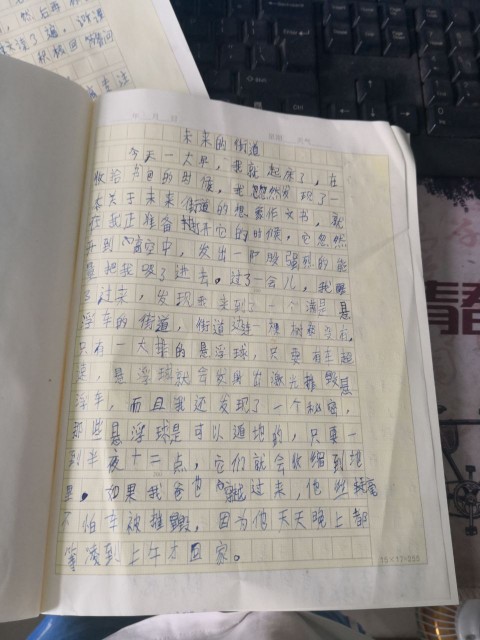 未来的街道
今天一大早，我就起床了，在
收拾书包的时候，我忽然发现了一
本关于未来街道的想象作文书，就
在我正准备打开它的时候，它忽然
升到高空中，发出一股强烈的能
量把我吸了进去。过了一会儿，我醒
过来，发现我来到了一个满是悬
浮车的街道，街道边连一棵树都没有，
只有一大排的悬浮球，只要有车超
速，悬浮球就会发射出激光摧毁悬
浮车，而且我还发现了一个秘密，
那些悬浮球是可以遁地的，只要一
到半夜十二点，它们就会收缩到地
里。如果我爸也穿越过来，他丝毫
不怕车被摧毁，因为他天天晚上都
等凌到上午才回家。
15×17=255